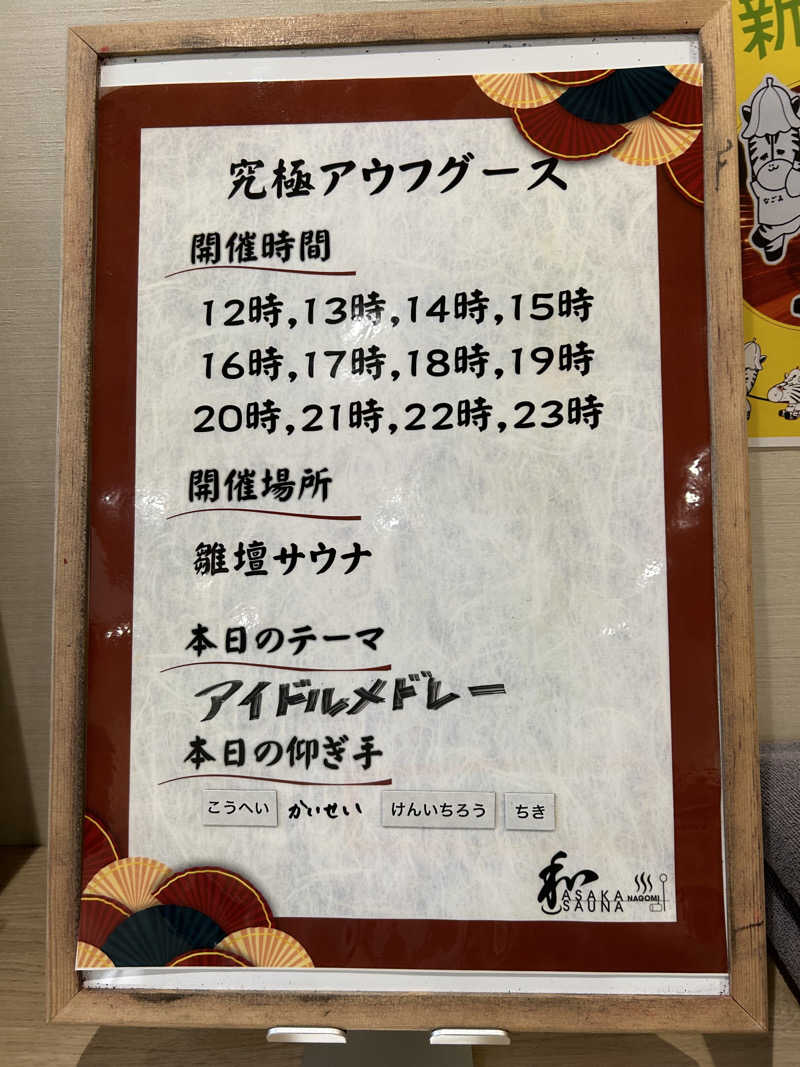 究極アウフグース
開催時間
12時,13時,14時,15時
16時,17時,18時,19時
20時,21時,22時,23時
開催場所
雛壇サウナ
本日のテーマ
アイドルメドレー
本日の仰ぎ手
こうへい かいせい けんいちろう ちき
和
ASAKA
SAUNA
NAGOMI
新
なごみ